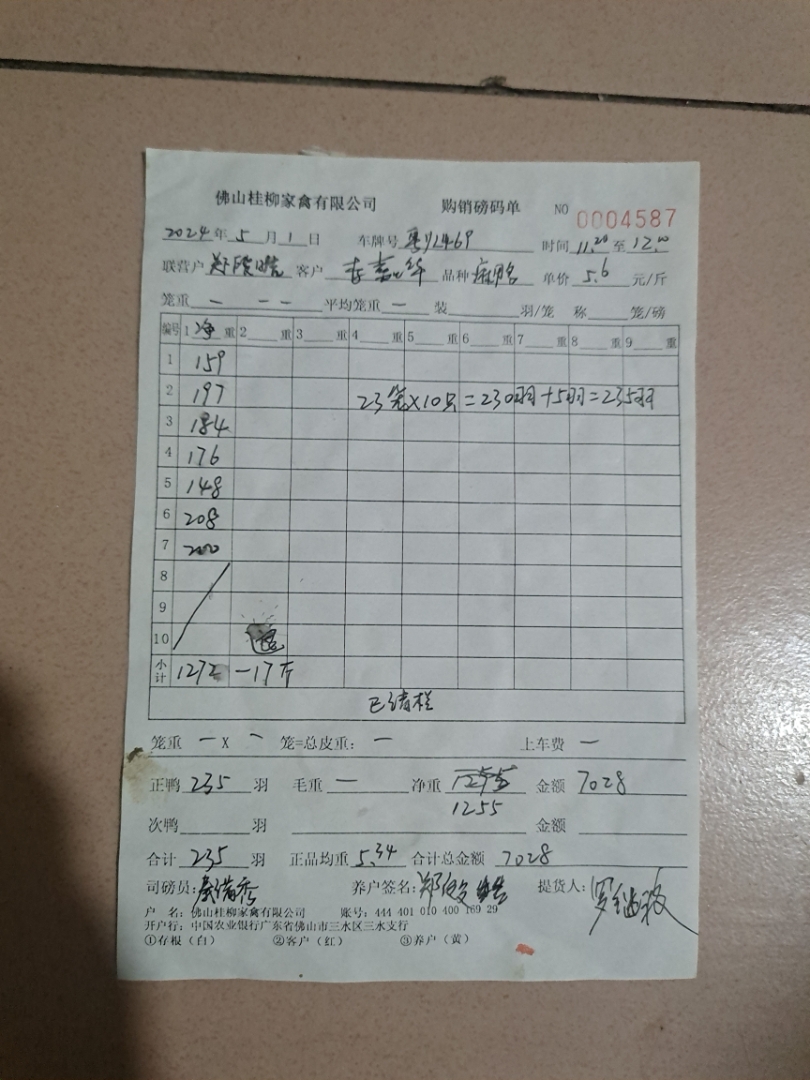 佛山桂柳家禽有限公司 购销磅码单 NO 0004587
2024年5月1日 车牌号 时间11.20至12.00
联营户 客户 品种 单价5.6元/斤
笼重 — — — 平均笼重 — 装 羽/笼 称 笼/磅
编号 1 净 重 2 重 3 重 4 重 5 重 6 重 7 重 8 重 9 重
1 159
2 197 23笼×10只=230羽+5羽=235羽
3 184
4 176
5 148
6 208
7 200
8
9
10
小计 1272 -17斤
已清栏
笼重 — X — 笼=总皮重: — 上车费 —
正鸭 235 羽 毛重 — 净重 1255 金额 7028
次鸭 羽 金额
合计 235 羽 正品均重 5.34 合计总金额 7028
司磅员: 养户签名: 提货人:
户 名: 佛山桂柳家禽有限公司 账号: 444 401 010 400 169 29
开户行: 中国农业银行广东省佛山市三水区三水支行
①存根(白) ②客户(红) ③养户(黄)